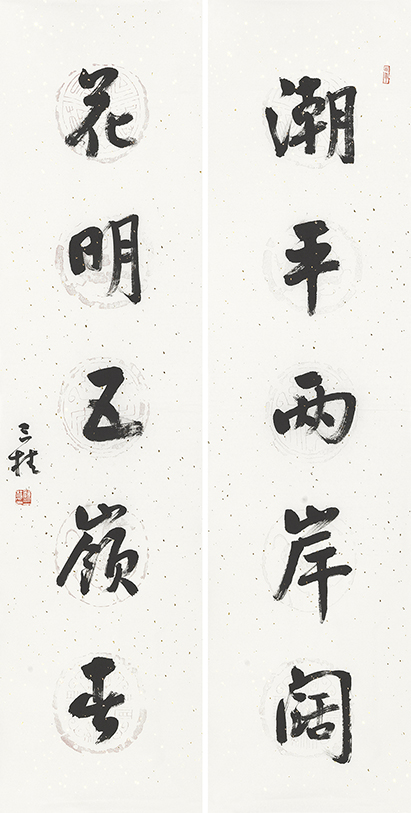 潮平两岸阔
花明五嶺春
三桂